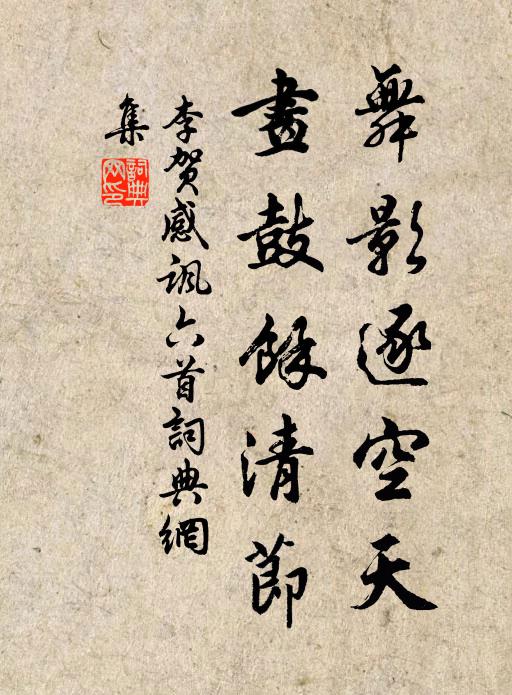 舞影逐空天
畫鼓餘清節
李賀感諷六首詞典網
集
詞典網印